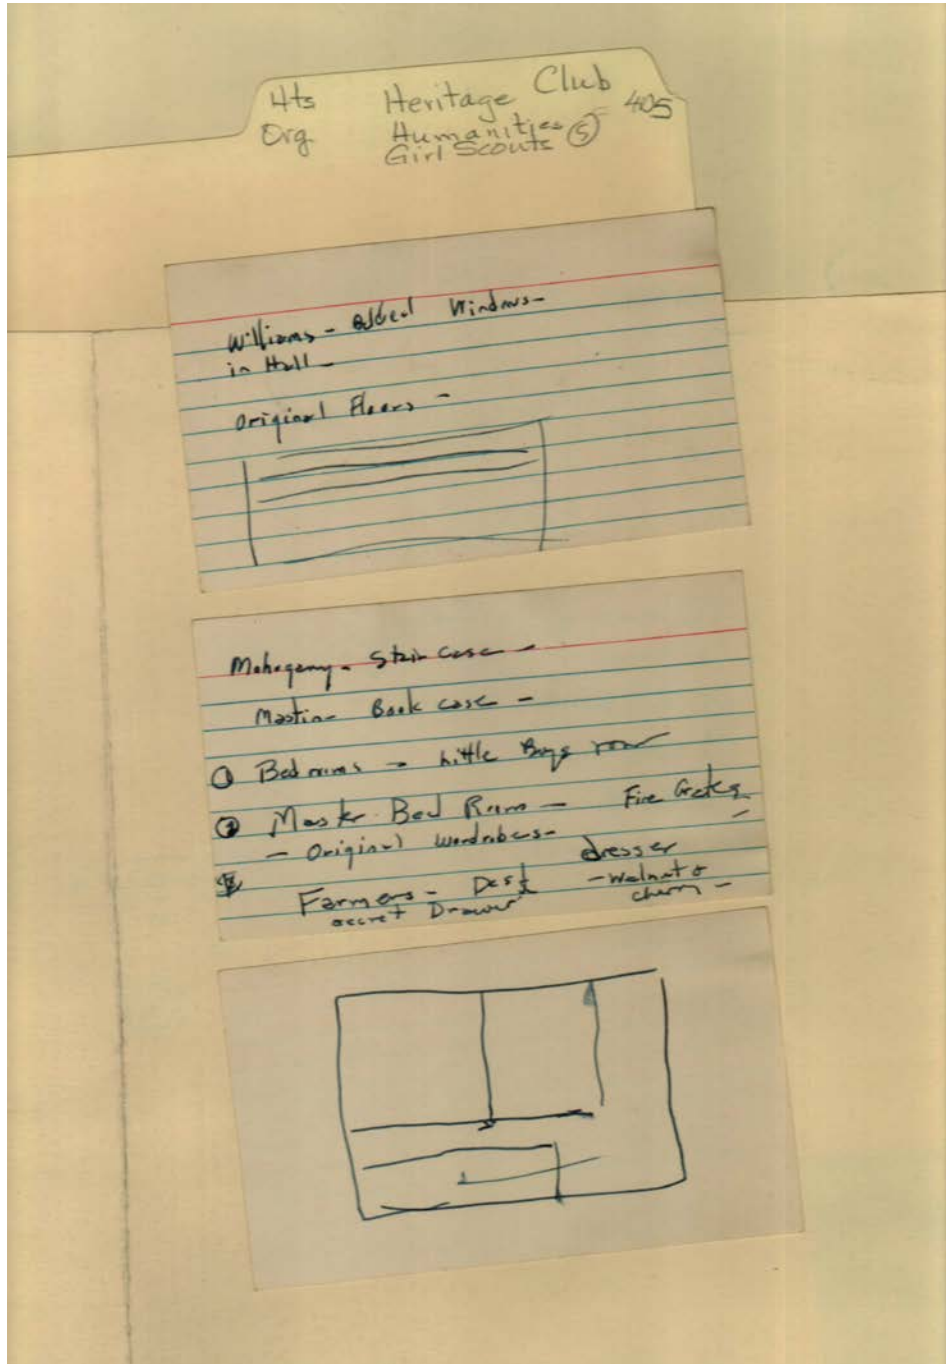 Hts Heritage Club 405
Org Humanities (5)
Girl Scouts
Williams - added Windows -
in Hall -
Original Floors -
Mahogany - Stair Case -
Mastin - Book case -
① Bed rooms - Little Boys
② Master Bed Room - Fire Grates
- Original Wardrobers - dresser
Farmers - Desk - Walnut &
secret Drawer cherry -